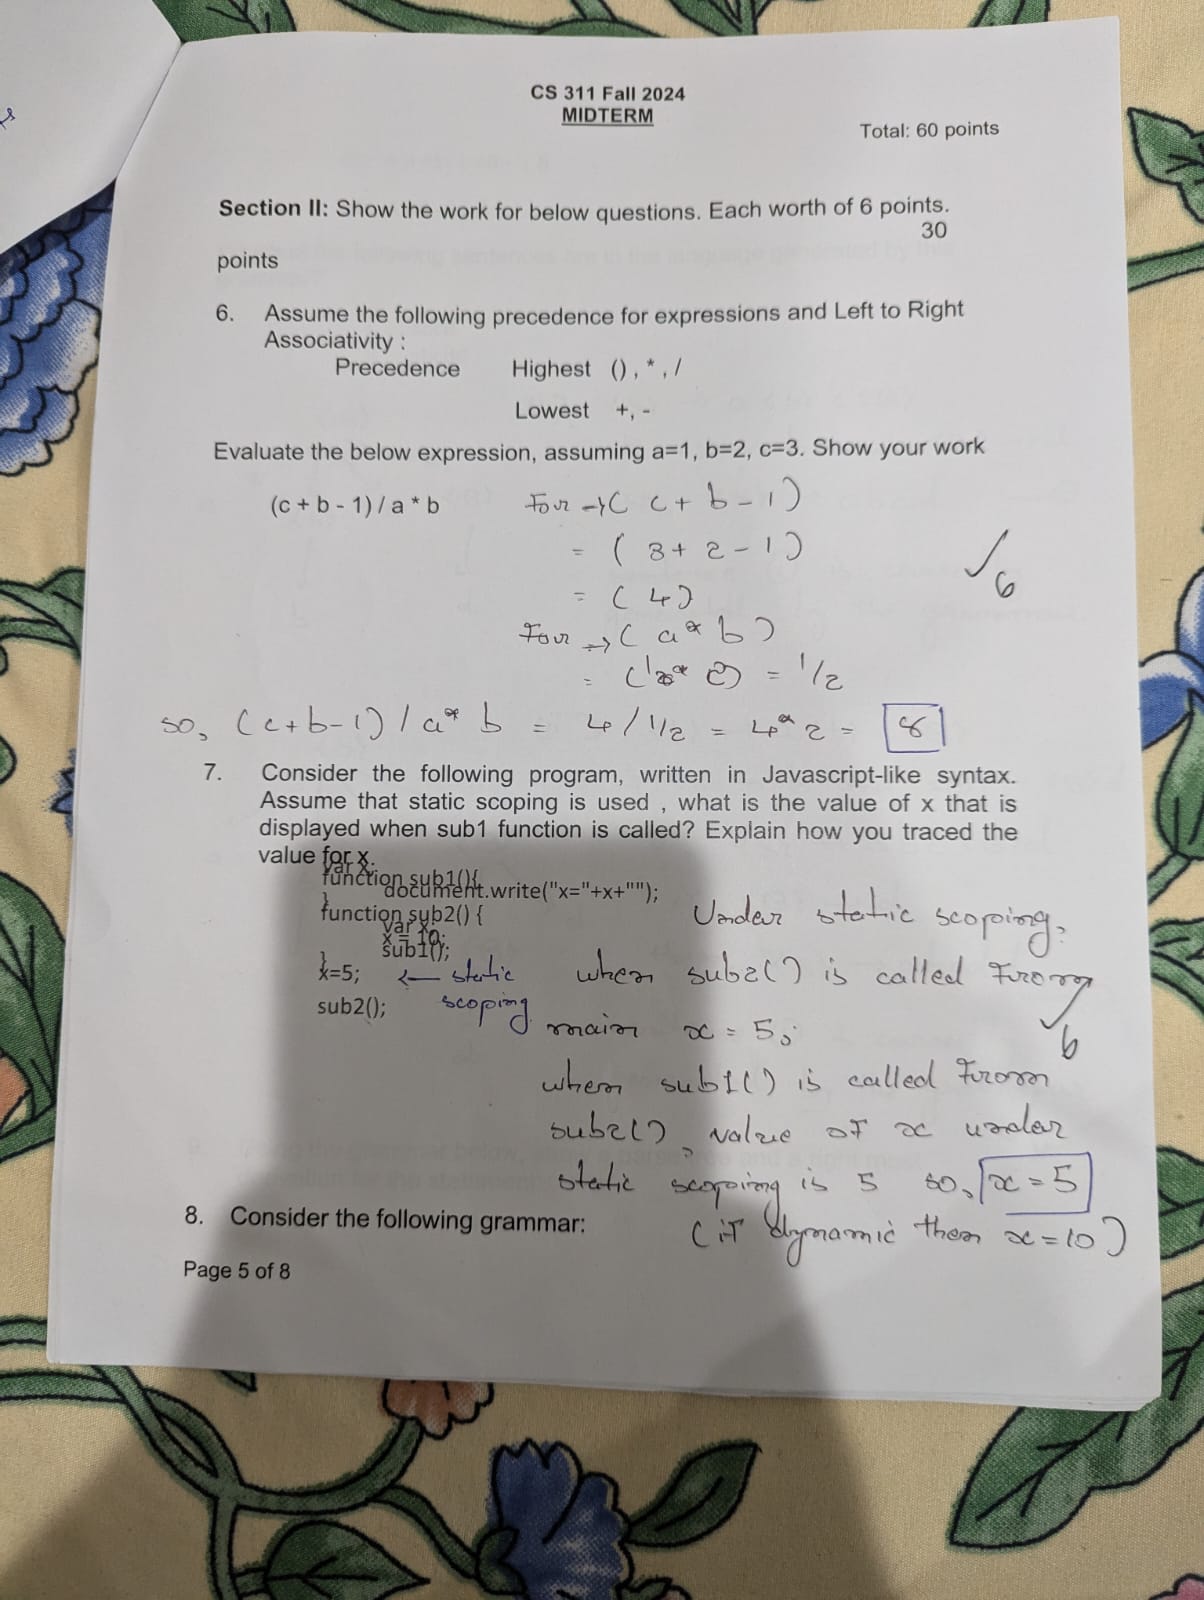 CS 311 Fall 2024
MIDTERM
Total: 60 points
Section II: Show the work for below questions. Each worth of 6 points.
30
points
6. Assume the following precedence for expressions and Left to Right
Associativity :
Precedence Highest () , * , /
Lowest +, -
Evaluate the below expression, assuming a=1, b=2, c=3. Show your work
(c + b - 1) / a * b
For → ( c + b - 1 )
= ( 3 + 2 - 1 )
= ( 4 )
✓6
For → ( a * b )
= ( 1 * 2 ) = 1/2
so, (c+b-1) / a * b = 4 / 1/2 = 4 * 2 = 8
7. Consider the following program, written in Javascript-like syntax.
Assume that static scoping is used , what is the value of x that is
displayed when sub1 function is called? Explain how you traced the
value for x.
var x;
function sub1(){
document.write("x="+x+"");
}
function sub2() {
var x;
x = 10;
sub1();
}
x=5; ← static
sub2(); scoping
Under static scoping,
when sub2() is called From
main x = 5,
✓6
when sub1() is called From
sub2(), value of x under
static scoping is 5 so, x = 5
(if dynamic then x = 10)
8. Consider the following grammar:
Page 5 of 8